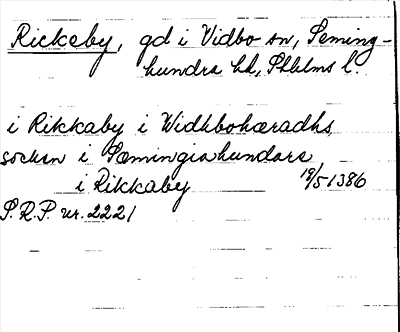 Rickeby, gd i Vidbo sn, Seming-
hundra hd, Sthlms l.
i Rikkaby i Widhbohæradhs
sockn i Sæmingiahundare
i Rikkaby 19/5 1386
S.R.P. nr. 2221